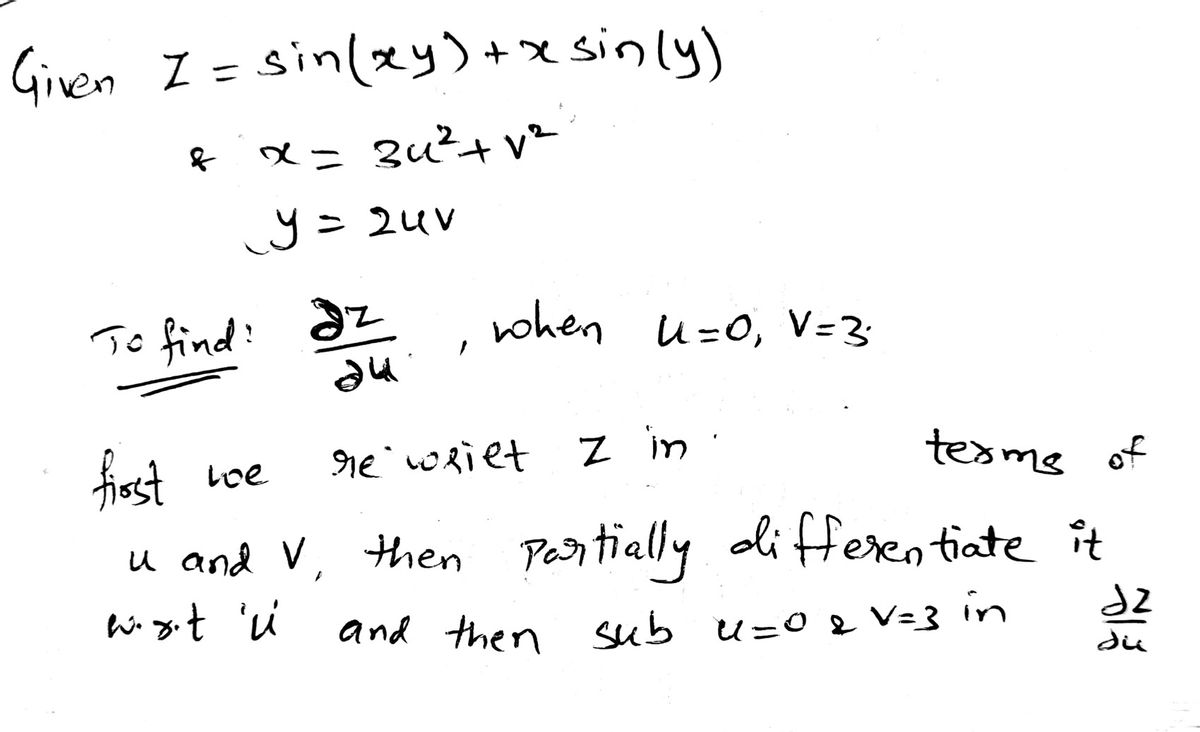 Given Z = sin(xy) + x sin(y)
& x = 3u² + v²
y = 2uv
To find: ∂z/∂u , when u=0, v=3.
first we re wriet z in terms of
u and v, then partially differentiate it
w.r.t 'u' and then sub u=0 & v=3 in ∂z/∂u